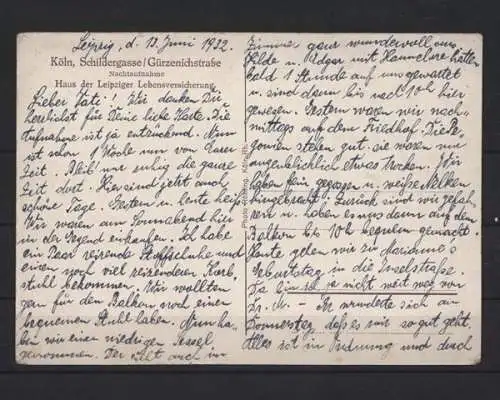 Leipzig, d. 13. Juni 1932.
Köln, Schildergasse/Gürzenichstraße
Nachtaufnahme
Haus der Leipziger Lebensversicherung
Lieber Vati! Wir danken Dir
herzlichst für Deine liebe Karte. Die
Aufnahme ist ja entzückend. Nun
ist schon 1 Woche um von Eurer
Zeit. Bleib' nur ruhig die ganze
Zeit dort. Hier sind jetzt auch
schöne Tage. Gestern u. heute heiß.
Wir waren am Sonnabend hier
in der Gegend einkaufen. Ich habe
ein Paar reizende Stoffschuhe und
einen noch viel reizenderen Korb,
stuhl bekommen. Wir wollten
gern für den Balkon noch einen
bequemen Stuhl haben. Nun ha-
ben wir einen niedrigen Sessel
genommen. Der sieht auch im
Zimmer ganz wundervoll aus.
Hilde u. Edgar mit Hannelore hatten
bald 1 Stunde auf uns gewartet
u. sind dann bis nach 10h hier
gewesen. Gestern waren wir nach-
mittags auf dem Friedhof. Die Be-
gonien stehen gut. sie waren nur
augenblicklich etwas trocken. Wir
haben ihn gegossen u. weiße Nelken
hingebracht. Zurück sind wir gefah-
ren u. haben es uns dann auf dem
Balkon bis 10h bequem gemacht.
Heute gehen wir zu Marianne's
Geburtstag in die Inselstraße.
Da bin ich ja nicht weit weg von
Dr. M. – Er wunderte sich am
Donnerstag, daß es mir so gut geht.
Alles ist in Ordnung und durch